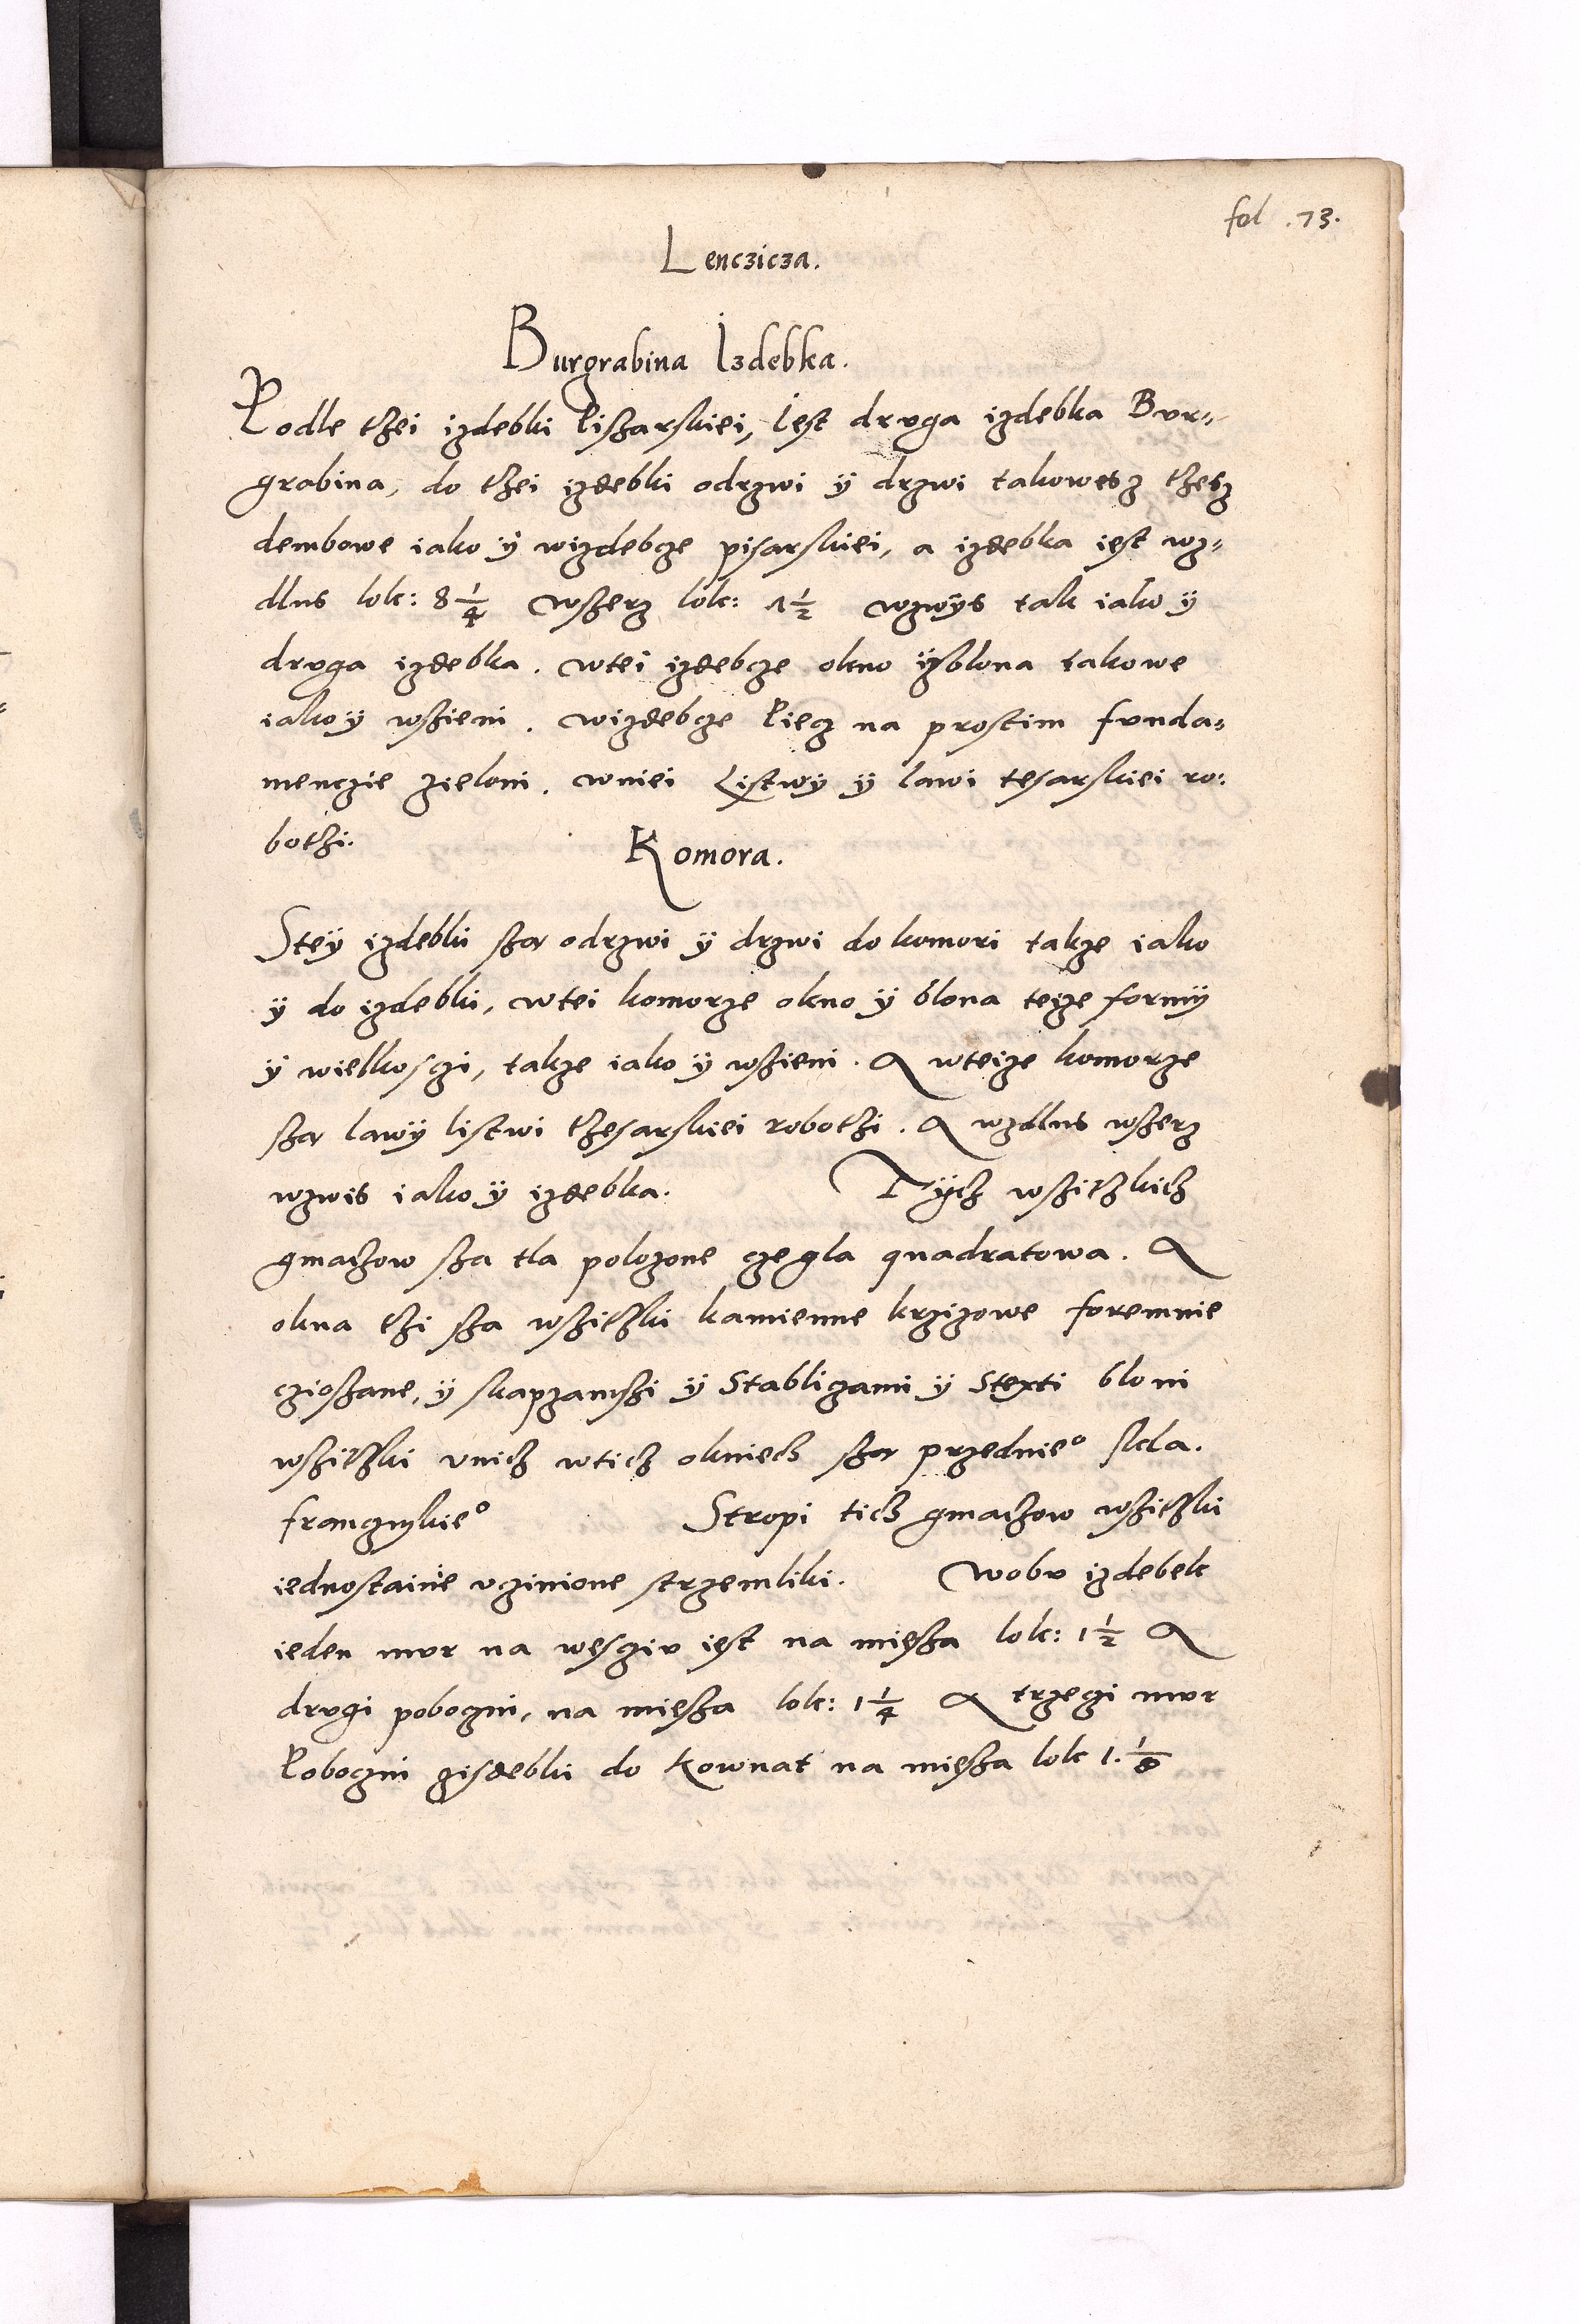 fol .73.
Lenczicza.
Burgrabina Izdebka.
Podle thei izdebki Piszarskiei, Iest drvga izdebka Bvr-
grabina, do thei izdebki odrzwi ÿ drzwi takowesz thesz
dembowe iako ÿ wizdebcze pisarskiei, a izdebka iest wz-
dlus lok: 8 1/4 wszerz lok: 1 1/2 wzwÿs tak iako ÿ
drvga izdebka. wtei izdebcze okno ÿ blona takowe
iako ÿ wszieni. wizdebcze Piecz na prostim fvnda-
menczie zieloni. wniei Listwÿ ÿ lawi tesarskiei ro:
bothi.
Komora.
Steÿ izdebki sza odrzwi ÿ drzwi do komori takze iako
ÿ do izdebki, wtei komorze okno ÿ blona teize formÿ
ÿ wielkosczi, takze iako ÿ wszieni. A wteize komorze
sza lawÿ listwi thesarskiei robothi. A wzdlus wszerz
wzwis iako ÿ izdebka. Tÿch wszithkich
gmachow sza tla polozone czegla quadratowa. A
okna thi sza wszithki kamienne krzizowe foremnie
cziosane, ÿ skapzamszi ÿ Stablizami ÿ Stexti bloni
wszithki vnich wtich okniech sza przednie° skla.
franczuskie° Stropi tich gmachow wszithki
iednostainie vczinione strzemliki. Wobv izdebek
ieden mvr na wesciv iest na miesza lok: 1 1/2 A
drvgi poboczni, na miesza lok: 1 1/4 A trzeczi mvr
Poboczni zisdebki do kownat na miesza lok 1. 1/8